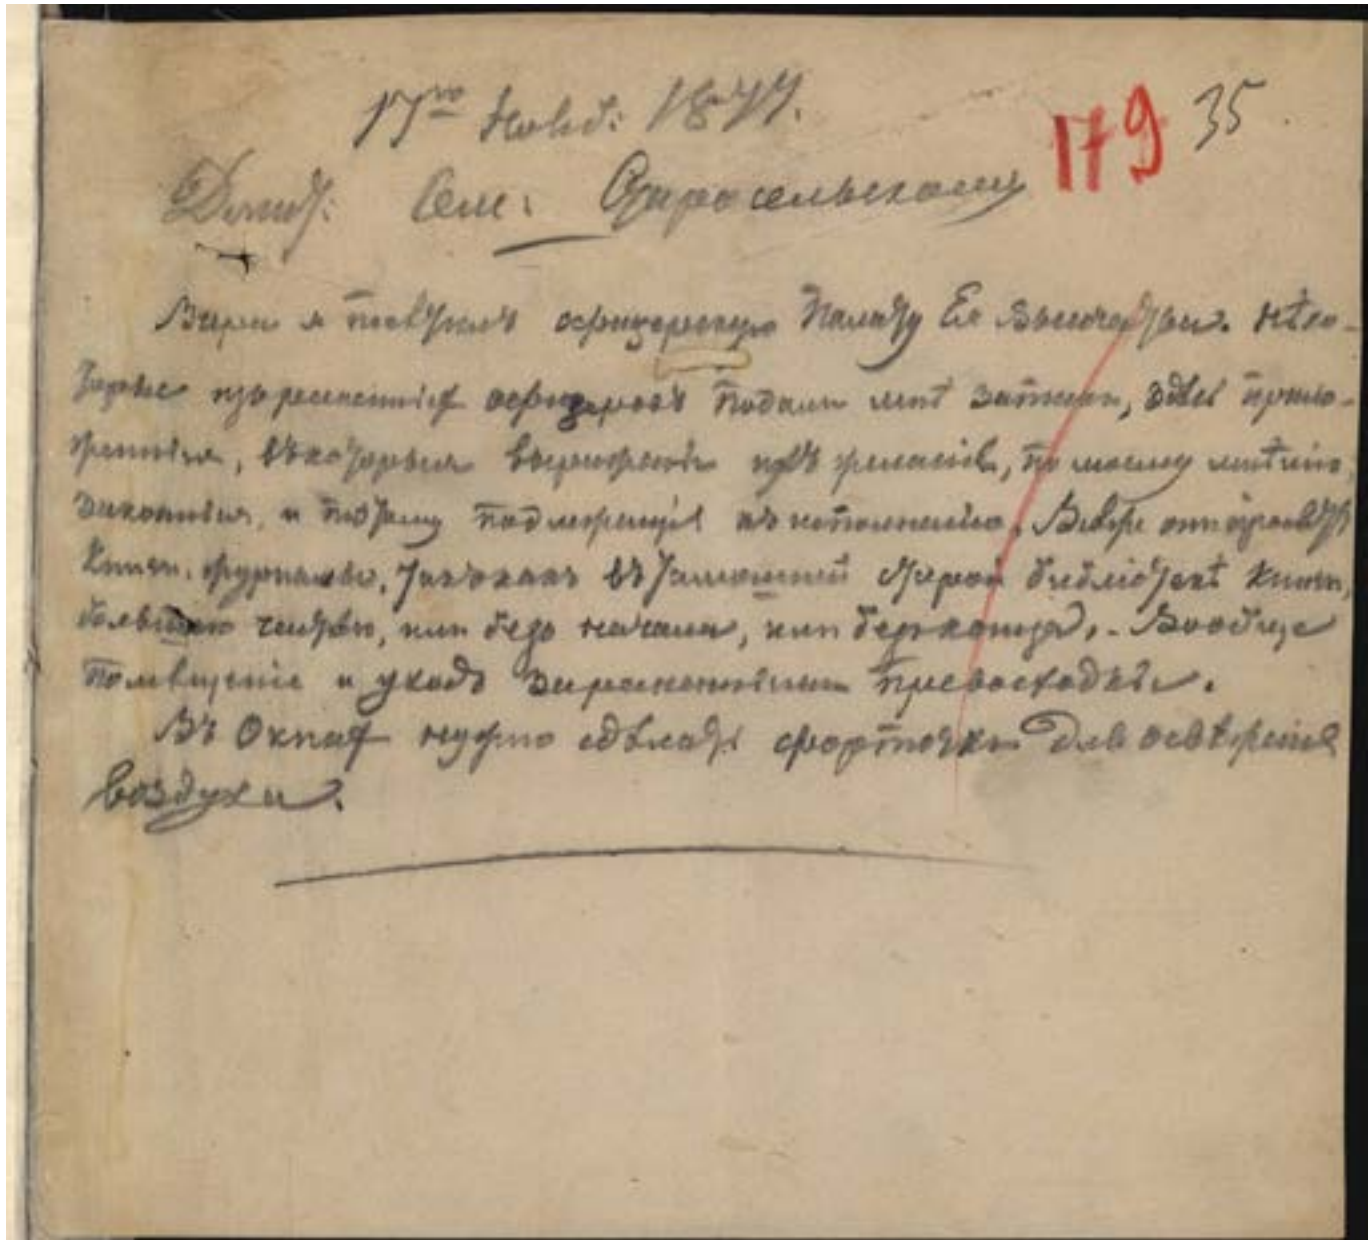 17го Нояб: 1877.
179 35
Дмит: Сем: Старосельскому
Вчера я посѣтилъ офицерскую Палату Ея Высочества. Нѣко-
торые изъ раненныхъ офицеровъ подали мнѣ записки, здѣсь прило-
женныя, въ которыхъ выражены ихъ желанія, по моему мнѣнію,
законныя, и потому подлежащія къ исполненію. Всѣ же они просятъ
книгъ, журналы, такъ какъ въ тамошней старой библіотекѣ книги,
большею частью, или безъ начала, или безъ конца. - Вообще
помѣщеніе и уходъ за раненными превосходны.
Въ Окнахъ нужно сдѣлать форточки для освѣженія
воздуха.